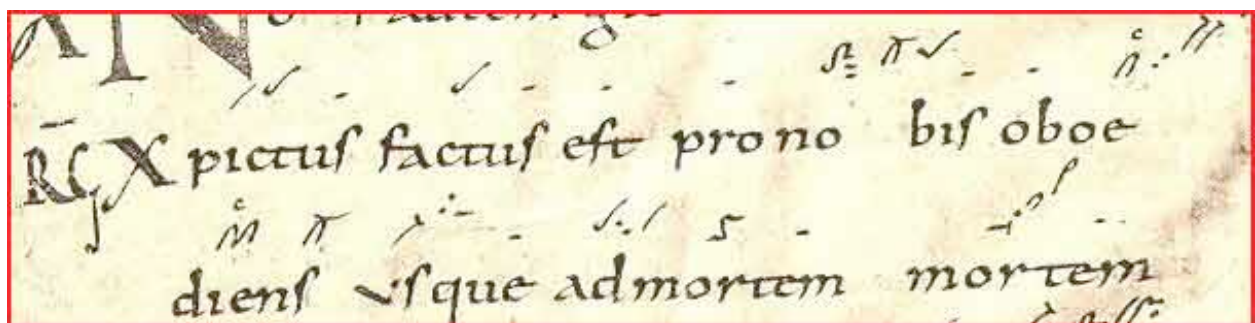 RG Xpictuſ factuſ eſt pro no biſ oboe
dienſ vſque ad mortem mortem